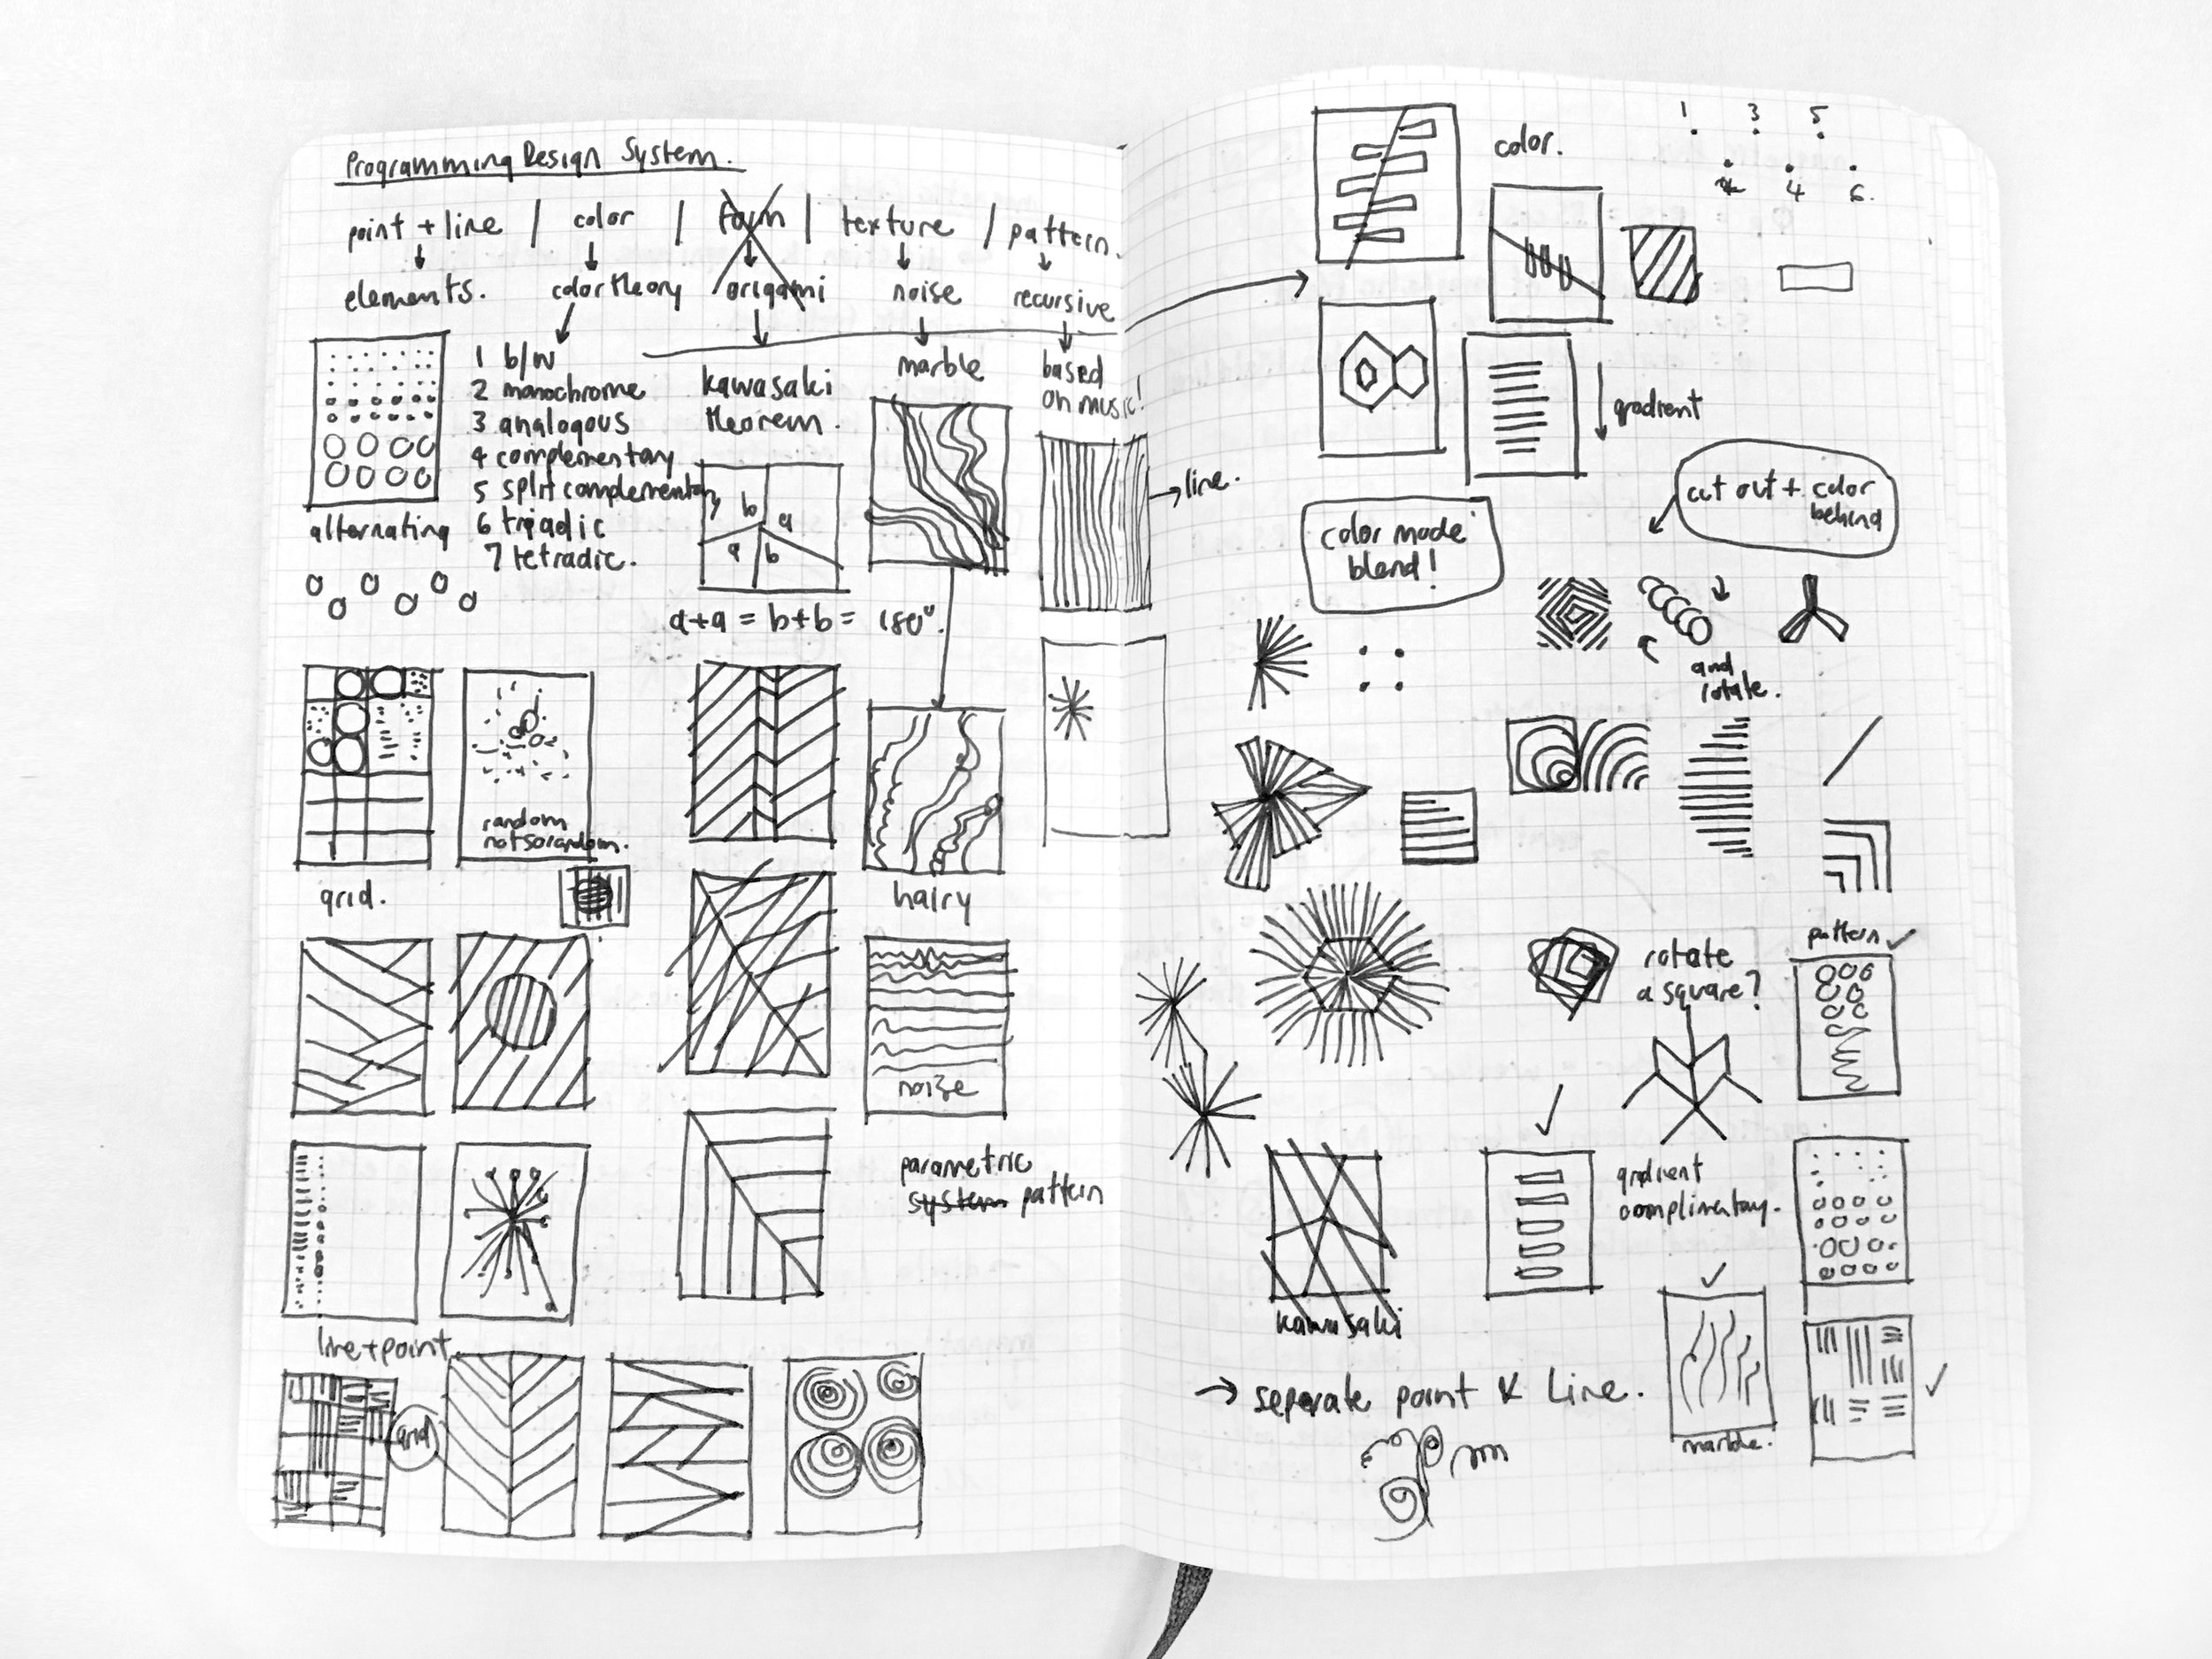 Programming Design System.
point + line / color / form / texture / pattern.
elements. color theory origami noise recursive
1 b/w
2 monochrome
3 analogous
4 complementary
5 split complementary
6 triadic
7 tetradic.
kawasaki
theorem.
marble
based
on music!
b a
a b
line.
alternating
a+a = b+b = 180°.
random
notsorandom.
grid.
hairy
noize
parametric
system pattern
line+point
grid
color.
1 3 5
2 4 6.
gradient
cut out + color
behind
color mode
blend!
and
rotate.
rotate
a square?
pattern ✓
gradient
complimentary.
kawasaki
→ seperate point & Line.
marble.